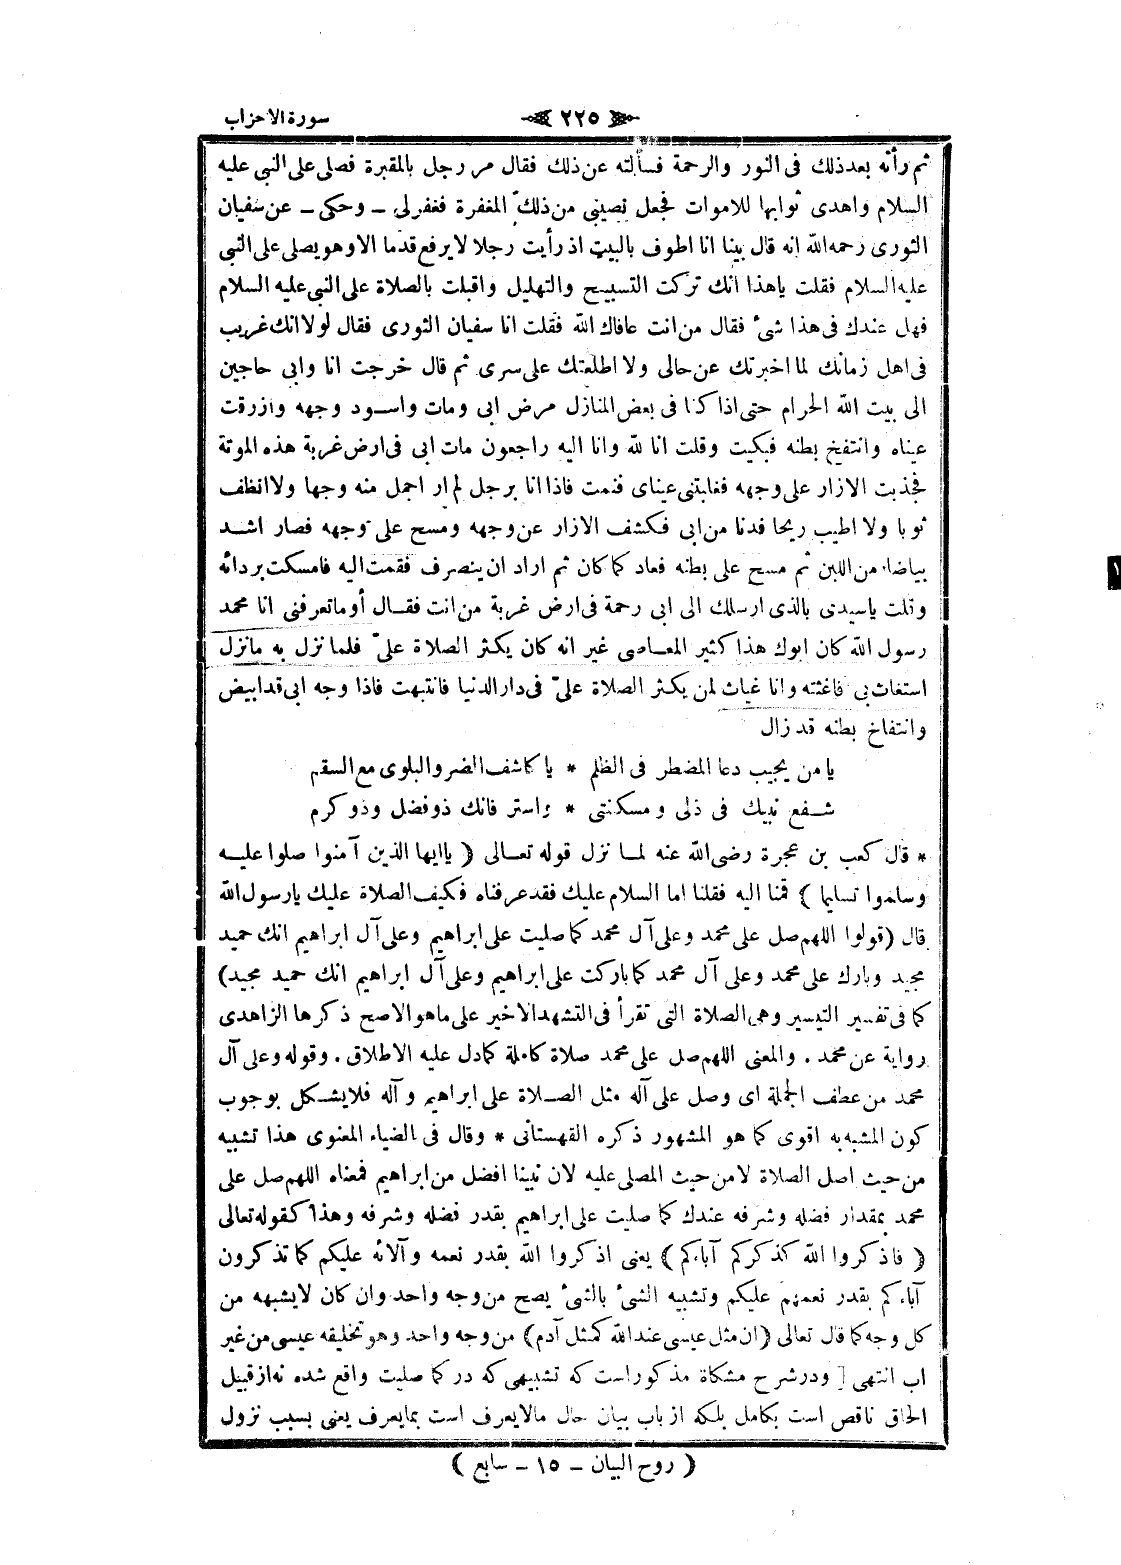 سورة الاحزاب
٢٢٥
ثم رأته بعد ذلك فى النور والرحمة فسألته عن ذلك فقال مر رجل بالمقبرة فصلى على النبى عليه
السلام واهدى ثوابها للاموات فجعل نصيبى من ذلك المغفرة فغفر لى ـ وحكى ـ عن سفيان
الثورى رحمه الله انه قال بينا انا اطوف بالبيت اذ رأيت رجلا لا يرفع قدما الا وهو يصلى على النبى
عليه السلام فقلت يا هذا انك تركت التسبيح والتهليل واقبلت بالصلاة على النبى عليه السلام
فهل عندك فى هذا شئ فقال من انت عافاك الله فقلت انا سفيان الثورى فقال لولا انك غريب
فى اهل زمانك لما اخبرتك عن حالى ولا اطلعتك على سرى ثم قال خرجت انا وابى حاجين
الى بيت الله الحرام حتى اذا كنا فى بعض المنازل مرض ابى ومات واسود وجهه وازرقت
عيناه وانتفخ بطنه فبكيت وقلت انا لله وانا اليه راجعون مات ابى فى ارض غربة هذه الموتة
فجذبت الازار على وجهه فغلبتنى عيناى فنمت فاذا انا برجل لم ار اجمل منه وجها ولا انظف
ثوبا ولا اطيب ريحا فدنا من ابى فكشف الازار عن وجهه ومسح على وجهه فصار اشد
بياضا من اللبن ثم مسح على بطنه فعاد كما كان ثم اراد ان ينصرف فقمت اليه فامسكت بردائه
وقلت يا سيدى بالذى ارسلك الى ابى رحمة فى ارض غربة من انت فقال أوما تعرفنى انا محمد
رسول الله كان ابوك هذا كثير المعاصى غير انه كان يكثر الصلاة علىّ فلما نزل به ما نزل
استغاث بى فاغثته وانا غياث لمن يكثر الصلاة علىّ فى دار الدنيا فانتبهت فاذا وجه ابى قد ابيض
وانتفاخ بطنه قد زال
يا من يجيب دعا المضطر فى الظلم * يا كاشف الضر والبلوى مع السقم
شفع نبيك فى ذلى ومسكنتى * واستر فانك ذو فضل وذو كرم
* قال كعب بن عجرة رضى الله عنه لما نزل قوله تعالى ( يا ايها الذين آمنوا صلوا عليه
وسلموا تسليما ) قمنا اليه فقلنا اما السلام عليك فقد عرفناه فكيف الصلاة عليك يا رسول الله
قال (قولوا اللهم صل على محمد وعلى آل محمد كما صليت على ابراهيم وعلى آل ابراهيم انك حميد
مجيد وبارك على محمد وعلى آل محمد كما باركت على ابراهيم وعلى آل ابراهيم انك حميد مجيد)
كما فى تفسير التيسير وهى الصلاة التى تقرأ فى التشهد الاخير على ما هو الاصح ذكرها الزاهدى
رواية عن محمد . والمعنى اللهم صل على محمد صلاة كاملة كما دل عليه الاطلاق . وقوله وعلى آل
محمد من عطف الجملة اى وصل على آله مثل الصلاة على ابراهيم وآله فلا يشكل بوجوب
كون المشبه به اقوى كما هو المشهور ذكره القهستانى * وقال فى الضياء المعنوى هذا تشبيه
من حيث اصل الصلاة لا من حيث المصلى عليه لان نبينا افضل من ابراهيم فمعناه اللهم صل على
محمد بمقدار فضله وشرفه عندك كما صليت على ابراهيم بقدر فضله وشرفه وهذا كقوله تعالى
( فاذكروا الله كذكركم آباءكم ) يعنى اذكروا الله بقدر نعمه وآلائه عليكم كما تذكرون
آباءكم بقدر نعمهم عليكم وتشبيه الشئ بالشئ يصح من وجه واحد وان كان لا يشبهه من
كل وجه كما قال تعالى (ان مثل عيسى عند الله كمثل آدم) من وجه واحد وهو تخليقه عيسى من غير
اب انتهى [ ودر شرح مشكاة مذكور است كه تشبيهى كه در كما صليت واقع شده نه از قبيل
الحاق ناقص است بكامل بلكه از باب بيان حال ما لا يعرف است بما يعرف يعنى بسبب نزول
( روح البيان ـ ١٥ ـ سابع )